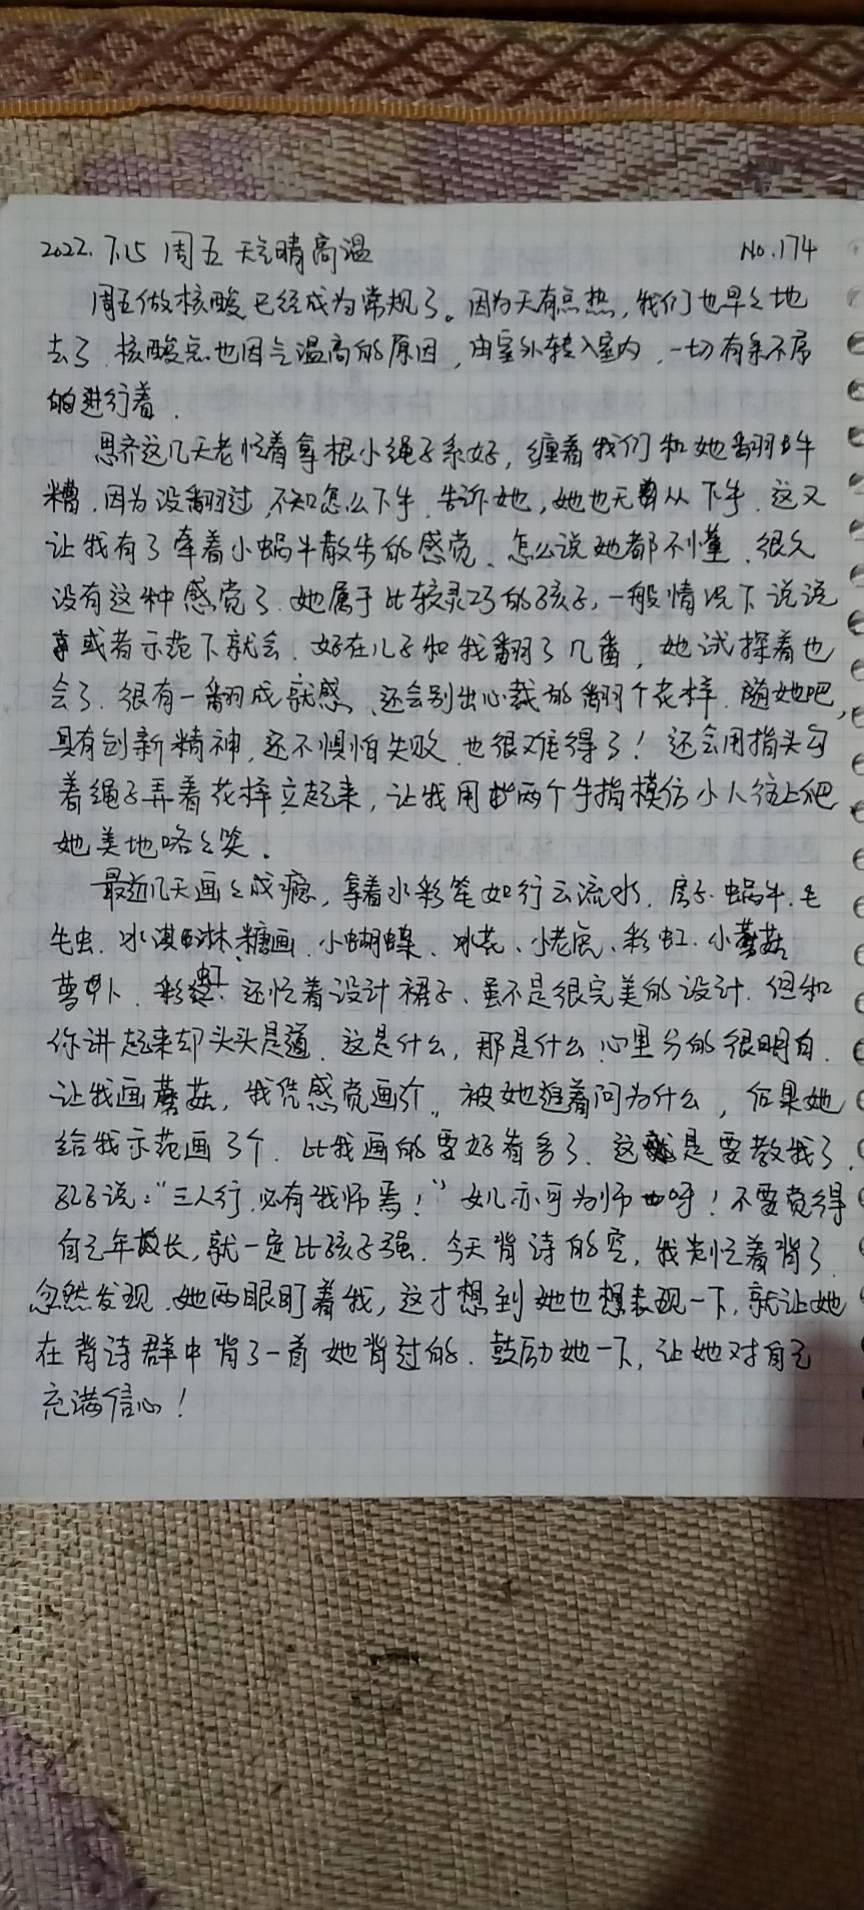 2022.7.15 周五 天气晴高温 No.174
周五做核酸已经成为常规了。因为天有点热,我们也早々地
去了.核酸点也因气温高的原因,由室外转入室内.一切有条不序
的进行着.
思齐这几天老忙着拿根小绳子系好,缠着我们和她翻牛
糟.因为没翻过,不知怎么下手.告诉她,她也无从下手.这又
让我有了牵着小蜗牛散步的感觉.怎么说她都不懂.很久
没有这种感觉了.她属于比较灵巧的孩子,一般情况下说说
或者示范下就会.好在儿子和我翻了几番,她试探着也
会了.很有一翻成就感、还会别出心裁的翻个花样.随她吧,
具有创新精神,还不惧怕失败.也很难得了!还会用指头勾
着绳子弄着花样立起来,让我用两个手指模仿小人往上爬
她美地咯々笑.
最近几天画々成瘾,拿着水彩笔如行云流水.房子.蜗牛.毛
毛虫.冰淇淋、糖画.小蝴蝶、冰花、小老虎、彩虹.小蘑菇
萝卜.彩虹.还忙着设计裙子、虽不是很完美的设计.但和
你讲起来却头头是道.这是什么,那是什么.心里分的很明白.
让我画蘑菇,我凭感觉画个。被她追着问为什么,后果她
给我示范画了个.比我画的要好看多了.这就是要教我了.
孔子说:“三人行.必有我师焉!”女儿亦可为师也呀!不要觉得
自己年长,就一定比孩子强.今天背诗的空,我光忙着背了.
忽然发现.她两眼盯着我,这才想到她也想表现一下.就让她
在背诗群中背了一首她背过的.鼓励她一下,让她对自己
充满信心!